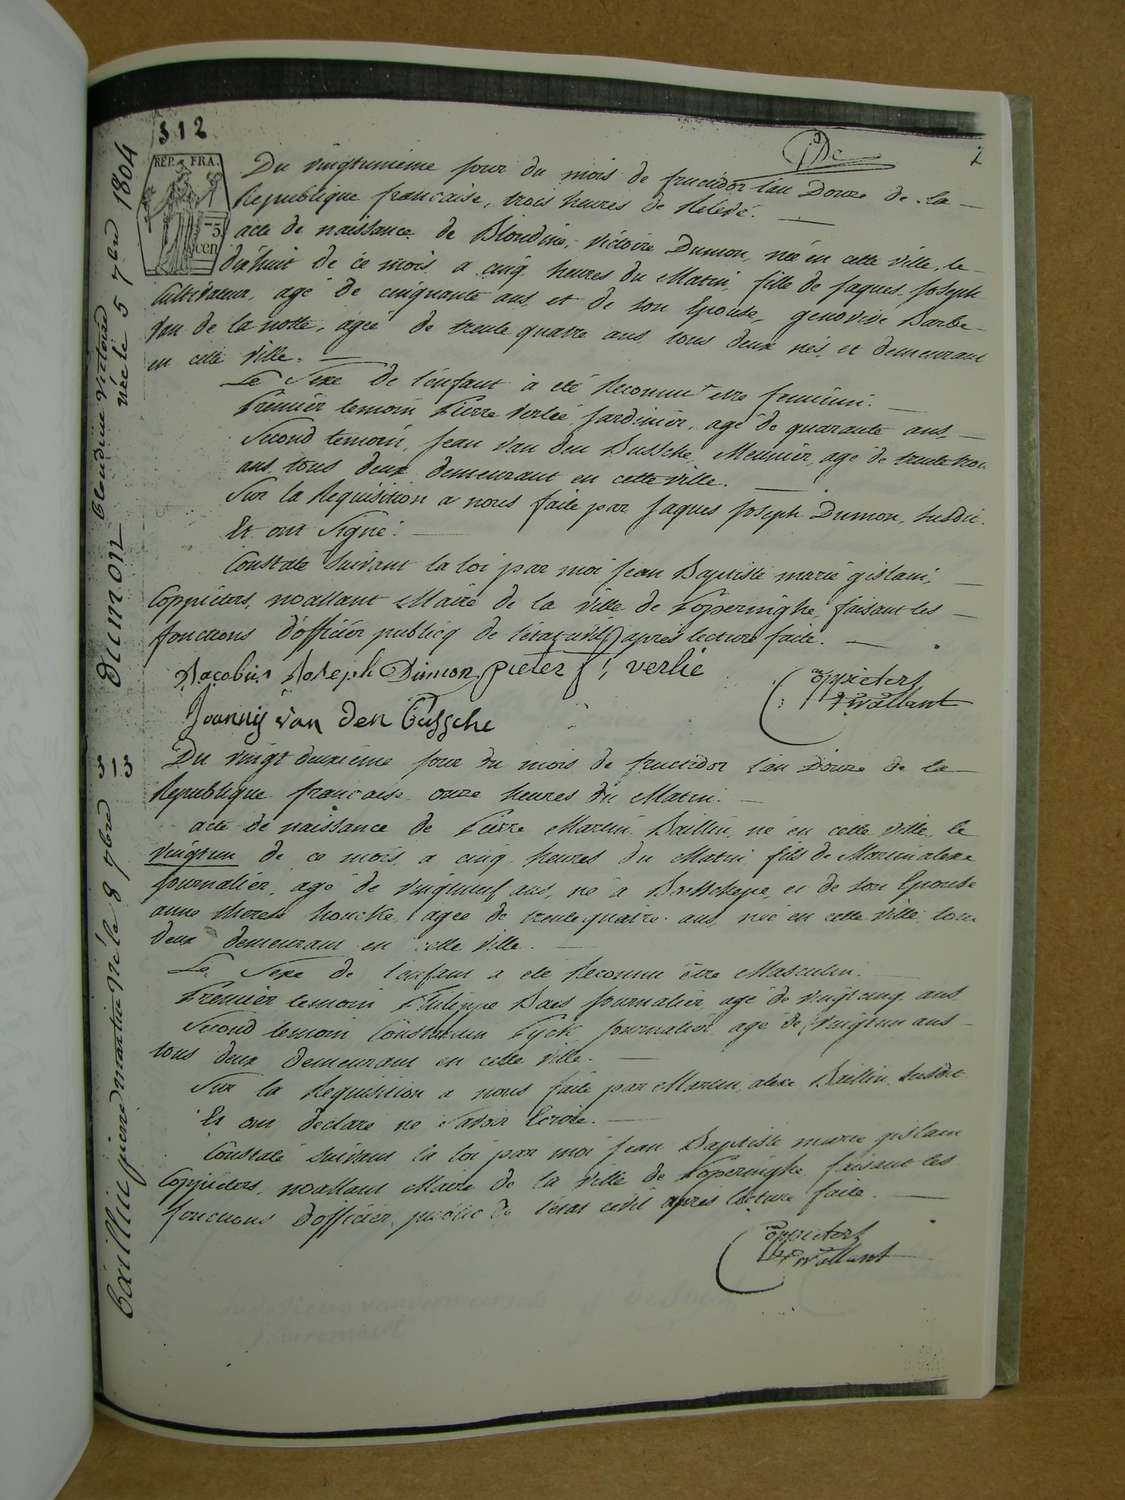 312
REP. FRA.
75
cen
2
Du vingtunieme jour du mois de fructidor l'an Douze de la
Republique française, trois heures de Relevé.
acte de naissance de Blondine, victoire Dumon, née en cette ville, le
dixhuit de ce mois, a cinq heures du Matin, fille de jaques joseph
Cultivateur, agé de cinquante ans, et de son Epouse, genovive Barbe
de la notte, agée de trente quatre ans, tous deux nés, et demeurant
en cette ville.
Le Sexe de l'enfant à été Reconnu etre feminin.
Premier temoin Pierre Verlié Jardinier, agé de quarante ans,
Second temoin, jean van den Bussche, Meunier, agé de trente
ans, tous deux demeurant en cette ville.
Sur la Requisition a nous faite par jaques joseph Dumon, susdit.
Et ont Signé:
Constaté suivant la loi par moi jean Baptiste marie gislain,
Coppieters, wallant Maire de la ville de Poperinghe, faisant les
fonctions d'officier publicq de l'etat civil, après lecture faite.
Jacobus Joseph Dimon pieter verlie
Joannis van den Bussche
Coppieters
wallant
dumon blondine victoire
née le 5 7bre 1804
313
Du vingt deuxieme jour du mois de fructidor l'an Douze de la
Republique française onze heures du Matin.
acte de naissance de Pierre Martin Baillin, né en cette ville, le
vingtun de ce mois, a cinq heures du Matin, fils de Martin alexe
journalier, agé de vingtneuf ans, né à et de son Epouse
anne therese houcke, agée de trente quatre ans, née en cette ville, tous
deux demeurant en cette ville.
Le Sexe de l'enfant a eté Reconnu être Masculin.
Premier temoin Philippe Baes journalier agé de vingtcinq ans
Second temoin Constantin Pyck journalier agé de vingtun ans
tous deux demeurant en cette ville.
Sur la Requisition a nous faite par Martin alexe Baillin susdit
Et ont declaré ne savoir Ecrire.
Constaté suivant la loi par moi jean Baptiste marie gislain
Coppieters, wallant Maire de la ville de Poperinghe faisant les
fonctions d'officier public de l'etat civil après lecture faite.
Coppieters
wallant
bäilliu pierre martin Né le 8 7bre